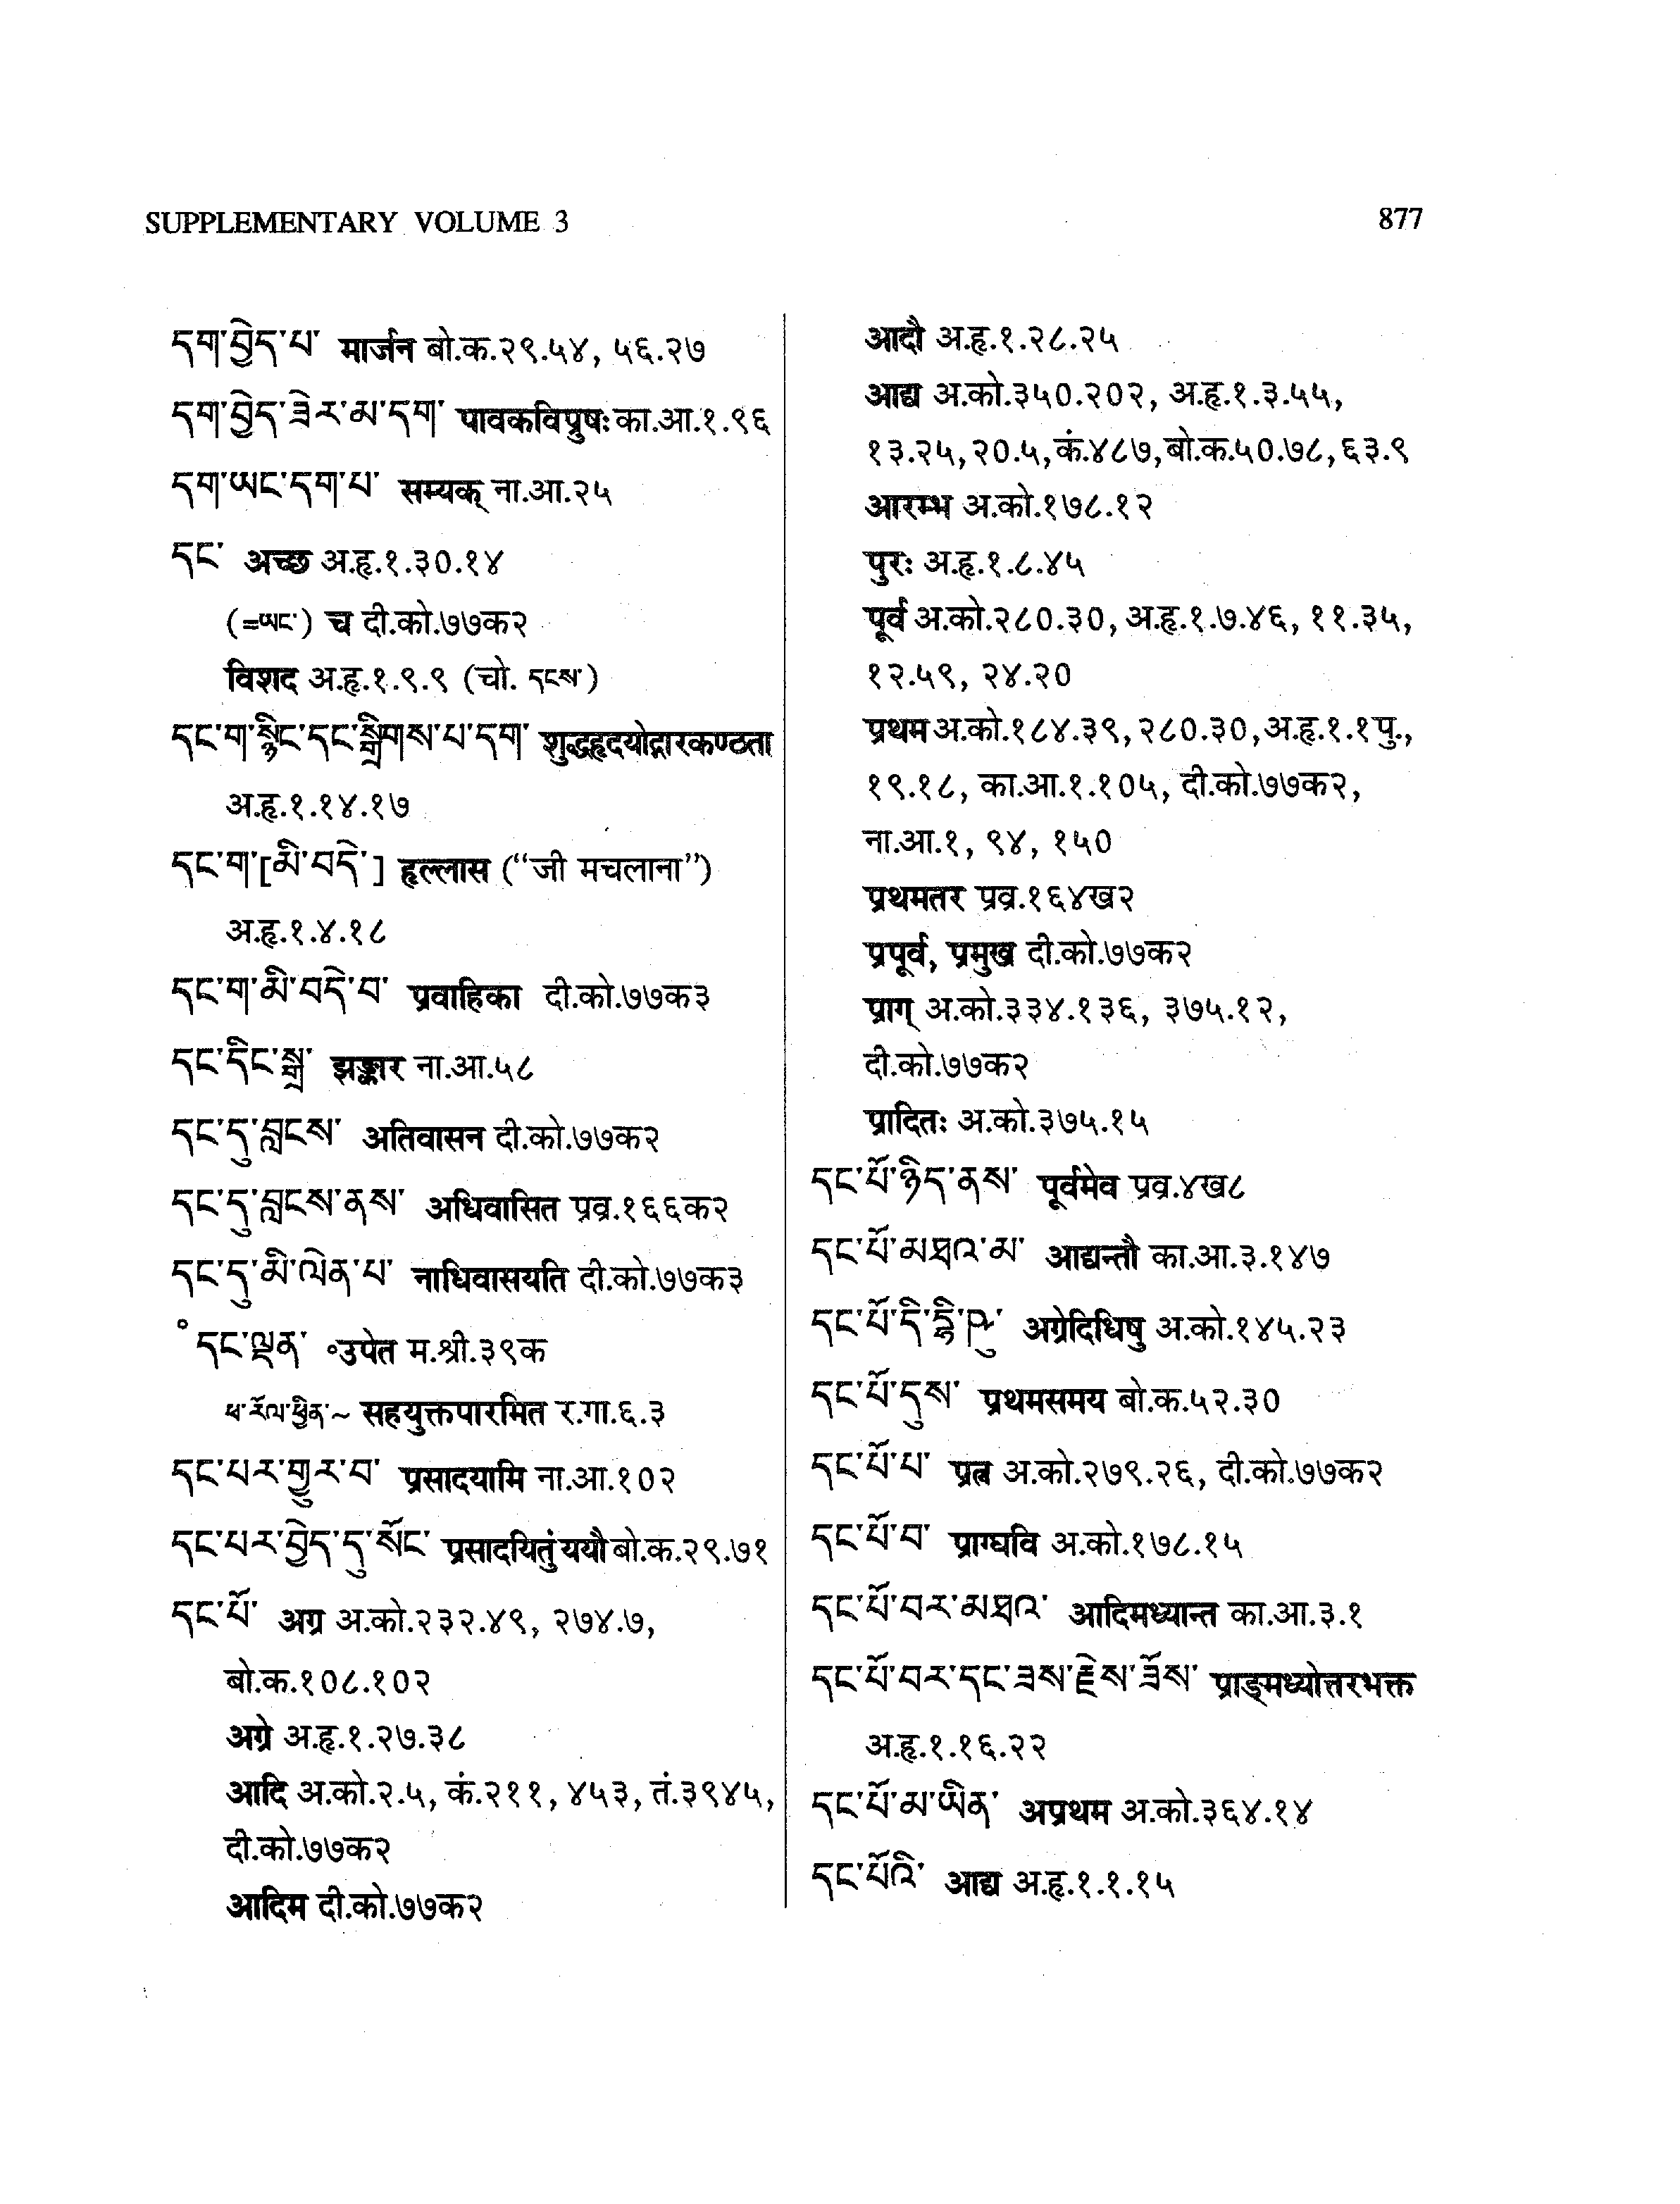 SUPPLEMENTARY VOLUME 3 877
དག་བྱེད་པ་ मार्जन बो.क.२९.५४, ५६.२७
དག་བྱེད་ཟེར་མ་དག་ पावकविप्रुषः का.आ.१.९६
དག་ཡང་དག་པ་ सम्यक् ना.आ.२५
དང་ अच्छ अ.हृ.१.३०.१४
(=ཡང་) च दी.को.७७क२
विशद अ.हृ.१.९.९ (चो. དངས་)
དང་ག་སྙིང་དང་སྒྲིགས་པ་དག་ शुद्धहृदयोद्गारकण्ठता
अ.हृ.१.१४.१७
དང་ག་[མི་བདེ་] हृल्लास (“जी मचलाना”)
अ.हृ.१.४.१८
དང་ག་མི་བདེ་བ་ प्रवाहिका दी.को.७७क३
དང་དིང་སྒྲ་ झङ्कार ना.आ.५८
དང་དུ་བླངས་ अतिवासन दी.को.७७क२
དང་དུ་བླངས་ནས་ अधिवासित प्रव्र.१६६क२
དང་དུ་མི་ལེན་པ་ नाधिवासयति दी.को.७७क३
°དང་ལྡན་ ॰उपेत म.श्री.३९क
ཕ་རོལ་ཕྱིན་~ सहयुक्तपारमित र.गा.६.३
དང་པར་གྱུར་བ་ प्रसादयामि ना.आ.१०२
དང་པར་བྱེད་དུ་སོང་ प्रसादयितुं ययौ बो.क.२९.७१
དང་པོ་ अग्र अ.को.२३२.४९, २७४.७,
बो.क.१०८.१०२
अग्रे अ.हृ.१.२७.३८
आदि अ.को.२.५, कं.२११, ४५३, तं.३९४५,
दी.को.७७क२
आदिम दी.को.७७क२
आदौ अ.हृ.१.२८.२५
आद्य अ.को.३५०.२०२, अ.हृ.१.३.५५,
१३.२५, २०.५, कं.४८७, बो.क.५०.७८, ६३.९
आरम्भ अ.को.१७८.१२
पुरः अ.हृ.१.८.४५
पूर्व अ.को.२८०.३०, अ.हृ.१.७.४६, ११.३५,
१२.५९, २४.२०
प्रथम अ.को.१८४.३९, २८०.३०, अ.हृ.१.१पु.,
१९.१८, का.आ.१.१०५, दी.को.७७क२,
ना.आ.१, ९४, १५०
प्रथमतर प्रव्र.१६४ख२
प्रपूर्व, प्रमुख दी.को.७७क२
प्राग् अ.को.३३४.१३६, ३७५.१२,
दी.को.७७क२
प्रादितः अ.को.३७५.१५
དང་པོ་ཉིད་ནས་ पूर्वमेव प्रव्र.४ख८
དང་པོ་མཐའ་མ་ आद्यन्तौ का.आ.३.१४७
དང་པོ་དི་དྷི་ཥུ་ अग्रेदिधिषु अ.को.१४५.२३
དང་པོ་དུས་ प्रथमसमय बो.क.५२.३०
དང་པོ་པ་ प्रत्न अ.को.२७९.२६, दी.को.७७क२
དང་པོ་བ་ प्राग्घवि अ.को.१७८.१५
དང་པོ་བར་མཐའ་ आदिमध्यान्त का.आ.३.१
དང་པོ་བར་དང་ཟས་རྗེས་ཟོས་ प्राङ्मध्योत्तरभक्त
अ.हृ.१.१६.२२
དང་པོ་མ་ཡིན་ अप्रथम अ.को.३६४.१४
དང་པོའི་ आद्य अ.हृ.१.१.१५